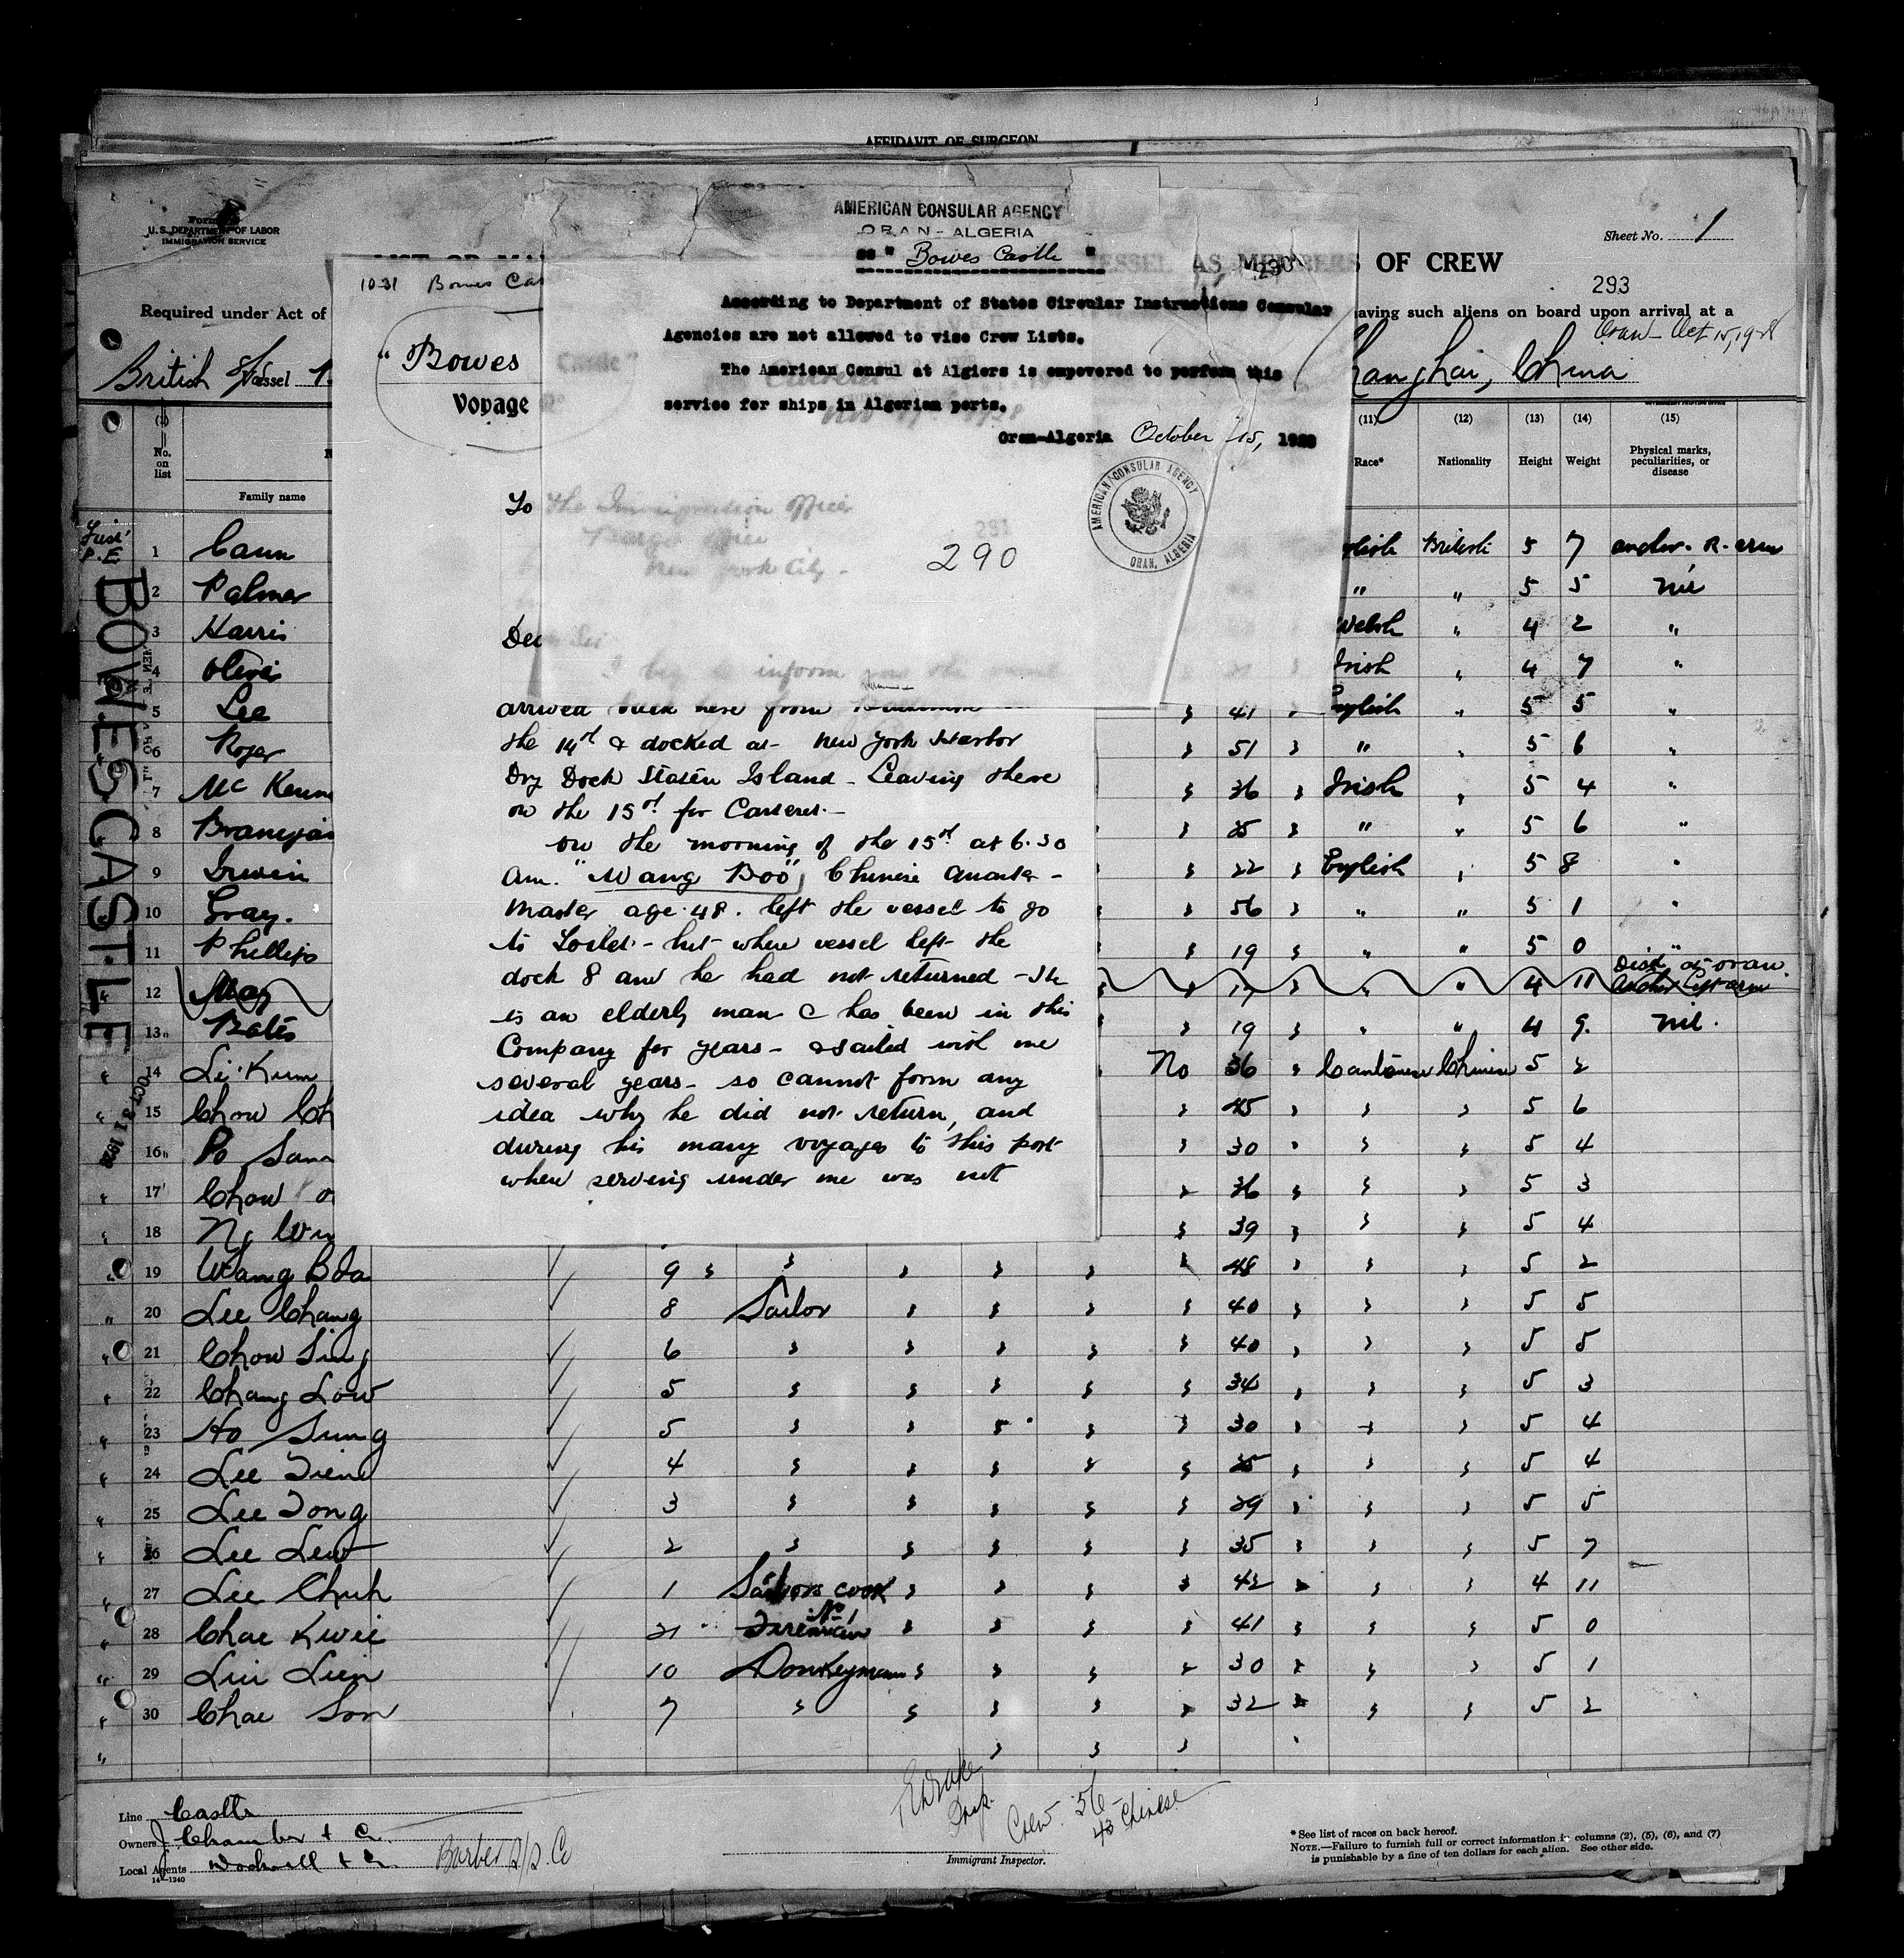 AFFIDAVIT OF SURGEON
U. S. DEPARTMENT OF LABOR
IMMIGRATION SERVICE
Sheet No. 1
OF CREW
293
Required under Act of
aving such aliens on board upon arrival at a
Oran - Oct 15, 1928
British
Vessel
hanghai, China
AMERICAN CONSULAR AGENCY
ORAN - ALGERIA
SS " Bowes Castle "
According to Department of States Circular Instructions Consular
Agencies are not allowed to vise Crew Lists.
The American Consul at Algiers is empovered to perform this
service for ships in Algerian ports.
Oran-Algeria October 15, 1928
AMERICAN CONSULAR AGENCY
ORAN, ALGERIA
290
10-31 Bowes Cas
"Bowes Castle"
Voyage No
To The Immigration Officer
Barge Office
New York City -
281
Dear Sir
I beg to inform you the
arrived back here from
the 14th & docked at - New York Harbor
Dry Dock Staten Island - Leaving there
on the 15th for Carteret -
On the morning of the 15th at 6.30
am. "Wang Boo", Chinese Quarter-
master age 48. left the vessel to go
to Toilet - but when vessel left the
dock 8 am he had not returned - He
is an elderly man & has been in this
Company for years - & sailed with me
several years - so cannot form any
idea why he did not return, and
during his many voyages to this port
when serving under me was not
(1)
No.
on
list
Family name
(11)
Race*
(12)
Nationality
(13)
Height
(14)
Weight
(15)
Physical marks,
peculiarities, or
disease
BOWES CASTLE
OCT 31 1928
1 Cann glish British 5 7 anchor - R - arm
2 Palmer " " 5 5 Nil
3 Harris Welsh " 4 2 "
4 Irish " 4 7 "
5 Lee 41 English " 5 5 "
6 Roger 51 " " 5 6 "
7 Mc Kenn 36 Irish " 5 4 "
8 Branigan 25 " " 5 6 "
9 Irwin 22 English " 5 8 "
10 Gray. 56 " " 5 1 "
11 Phillips 19 " " 5 0 "
Disd at Oran.
12 May 17 " " 4 11 anchor left arm
13 Bates 19 " " 4 9. Nil.
14 Li Kum No 36 Cantonese Chinese 5 2
15 Chow Ch 45 " " 5 6
16 Po Sam 30 " " 5 4
17 Chow 36 " " 5 3
18 Ng Wu 39 " " 5 4
19 Wang Boo 9 " " " " " " 48 " " " 5 2
20 Lee Chang 8 Sailor " " " " 40 " " " 5 5
21 Chow Sing 6 " " " " " 40 " " " 5 5
22 Chang Low 5 " " " " " 34 " " " 5 3
23 Ho Sung 5 " " " " " 30 " " " 5 4
24 Lee Tien 4 " " " " " 25 " " " 5 4
25 Lee Tong 3 " " " " " 29 " " " 5 5
26 Lee Lew 2 " " " " " 35 " " " 5 7
27 Lee Chuh 1 Sailors cook " " " " 42 " " " 4 11
28 Chae Kwei 21 No 1 Fireman " " " " 41 " " " 5 0
29 Lui Lien 10 Donkeyman " " " " 30 " " " 5 1
30 Chae Son 7 " " " " " 32 " " " 5 2
Line Castle
Owners J Chamber & Co.
Local Agents
Barber S/S. Co
14-1240
Crew 56
43 Chinese
Immigrant Inspector.
* See list of races on back hereof.
NOTE.—Failure to furnish full or correct information in columns (2), (5), (6), and (7)
is punishable by a fine of ten dollars for each alien. See other side.